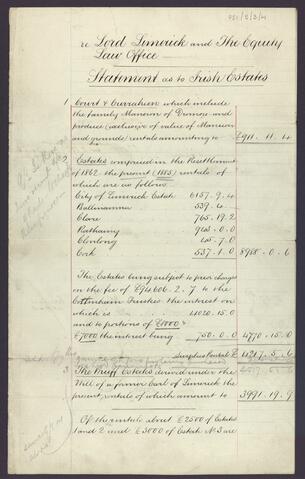 re Lord Limerick and The Equity
Law Office
Statement as to Irish Estates
1 Court & Curraheen which include
the family Mansion of Dromore and
produce (exclusive of value of Mansion
and grounds) rentals amounting to £911.11.4
2 Estates comprised in the Resettlement
of 1862 the present (1885) rentals of
which are as follows
City of Limerick Estate 6157.9.4
Ballinamina 539.4.
Clare 765.19.2
Rathany
Clonlong
Cork 537.1.0 8988.0.6
The Estates being subject to prior charges
on the fee of £94606.2.7 to the
Cottenham Trustees the interest on
which is 4020.15.0
and to portions of £8000 &
£7000 the interest being 750.0.0 4770.15.0
Surplus Rental £ 4217.5.6
3 The Pruff Estates derived under the
Will of a former Earl of Limerick the
present rentals of which amount to 3991.19.9
Of the rentals about £2500 of Estates
1 and 2 and £3000 of Estate No 3 are